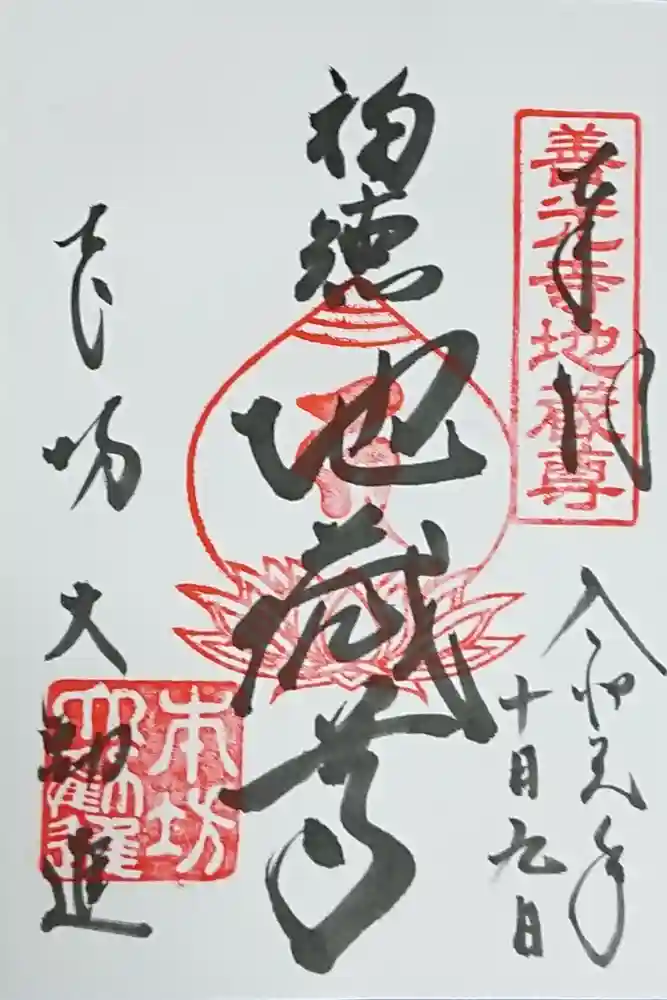 奉拝
善光寺地蔵尊
令和元年
十月九日
福徳
地蔵尊
本坊大勧進
本坊
大勸進